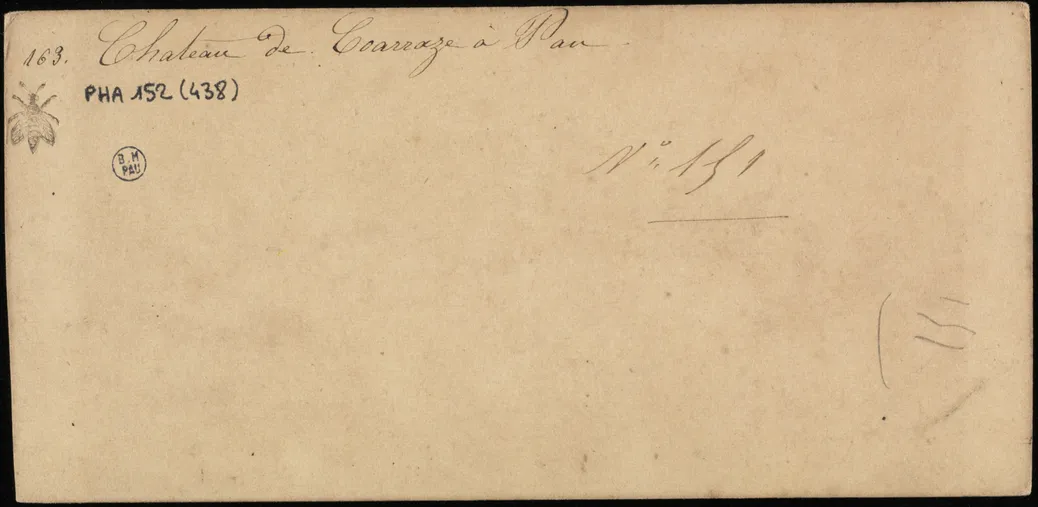 163. Chateau de Coarraze à Pau.
PHA 152 (438)
B.M
PAU
N° 151